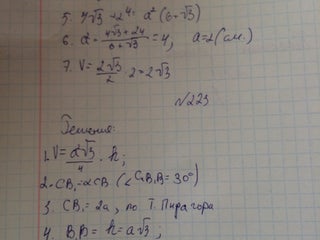 5. 4√3 + 24 = a² (6+√3)
6. a² = (4√3 + 24)/(6 + √3) = 4, a=2 (см.)
7. V = 2√3/2 · 2 = 2√3
№223
Решение:
1. V = a²√3/4 · h;
2. CB₁ = 2CB (∠C₁B₁B = 30°)
3. CB₁ = 2a, по Т. Пифагора
4. B₁B = h = a√3;